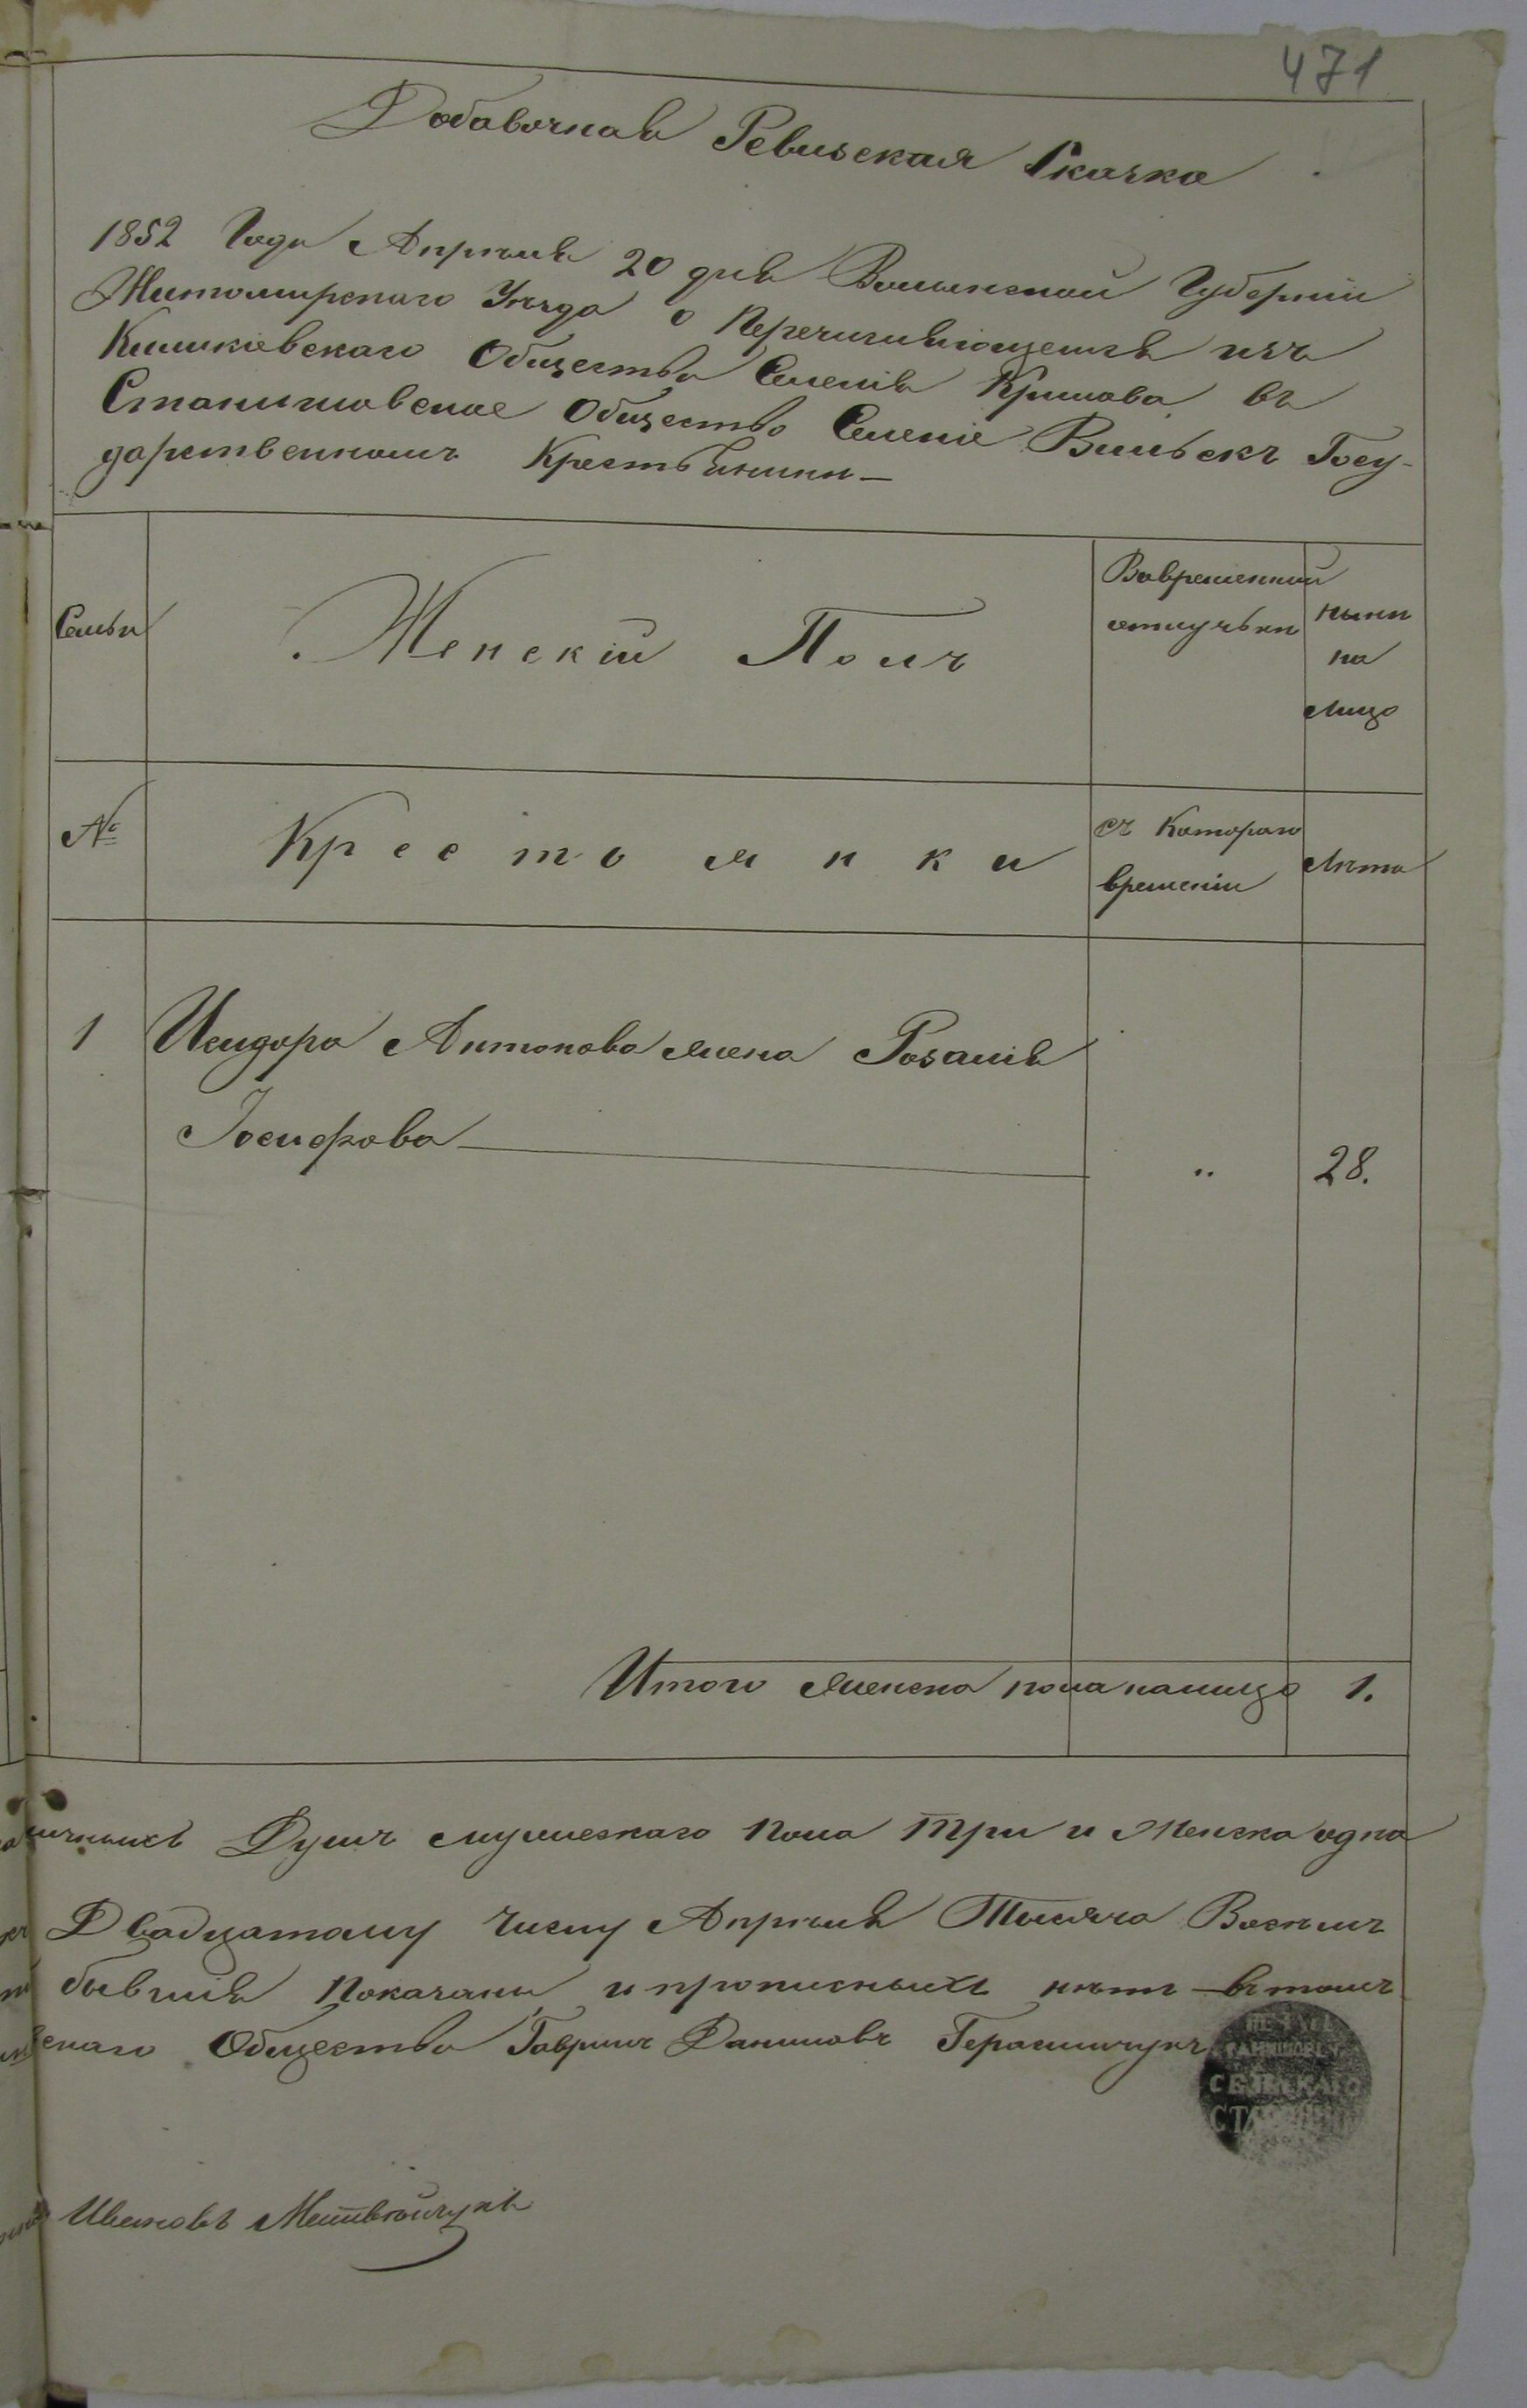 471
Добавочная Ревизская Сказка
1852 Года Апрѣля 20 дня Волынской Губерніи
Житомирскаго Уѣзда о Перечисляющемся изъ
Общества Селенія Крылова въ
Станишовское Общество Селеніе Вильскъ Госу-
дарственномъ Крестьянинѣ
Семьи
Женскій Полъ
Вовременной
отлучьки
нынѣ
на
лицо
№
Крестьянки
съ Котораго
временіи
Лѣта
1
Исидора Антонова жена Розалія
Іосифова
"
28.
Итого женска пола налицо 1.
Душъ мужескаго пола три и Женска одна
Двадцатому Числу Апрѣля Тысяча Восемъ
бывшія Показаны и прописныхъ нѣтъ въ томъ
Общества Гаврилъ Даниловъ Герасимчукъ
СЕЛЬСКАГО
Ивановъ Матвѣйчукъ